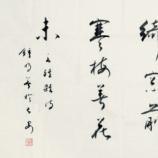 綺窗前
寒梅著花
未 王維雜詩